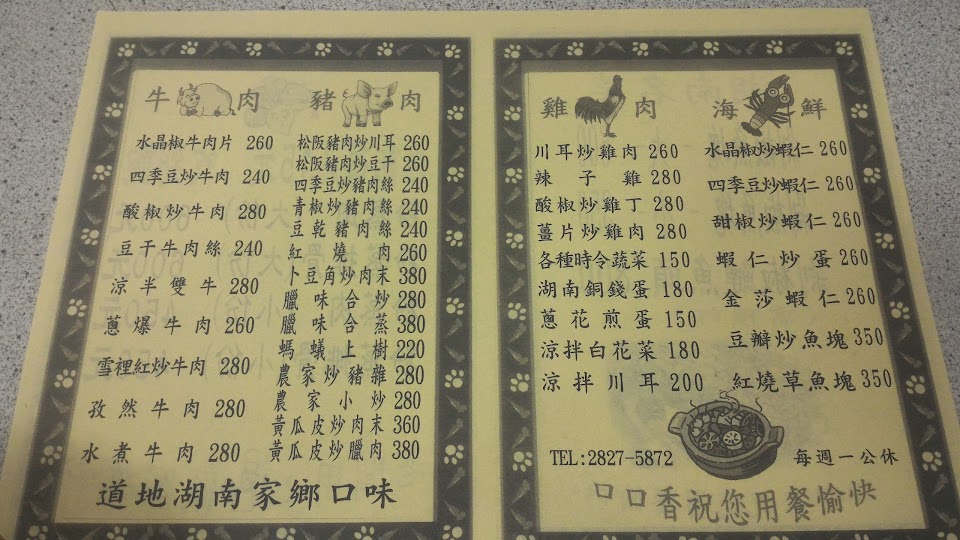 牛肉
水晶椒牛肉片 260
四季豆炒牛肉 240
酸椒炒牛肉 280
豆干牛肉絲 240
涼半雙牛 280
蔥爆牛肉 260
雪裡紅炒牛肉 280
孜然牛肉 280
水煮牛肉 280
豬肉
松阪豬肉炒川耳 260
松阪豬肉炒豆干 260
四季豆炒豬肉絲 240
青椒炒豬肉絲 240
豆乾豬肉絲 240
紅燒肉 260
卜豆角炒肉末 380
臘味合炒 280
臘味合蒸 380
螞蟻上樹 220
農家炒豬雜 280
農家小炒 280
黃瓜皮炒肉末 360
黃瓜皮炒臘肉 380
道地湖南家鄉口味
雞肉
川耳炒雞肉 260
辣子雞 280
酸椒炒雞丁 280
薑片炒雞肉 280
各種時令蔬菜 150
湖南銅錢蛋 180
蔥花煎蛋 150
涼拌白花菜 180
涼拌川耳 200
海鮮
水晶椒炒蝦仁 260
四季豆炒蝦仁 260
甜椒炒蝦仁 260
蝦仁炒蛋 260
金莎蝦仁 260
豆瓣炒魚塊 350
紅燒草魚塊 350
TEL:2827-5872
每週一公休
口口香祝您用餐愉快